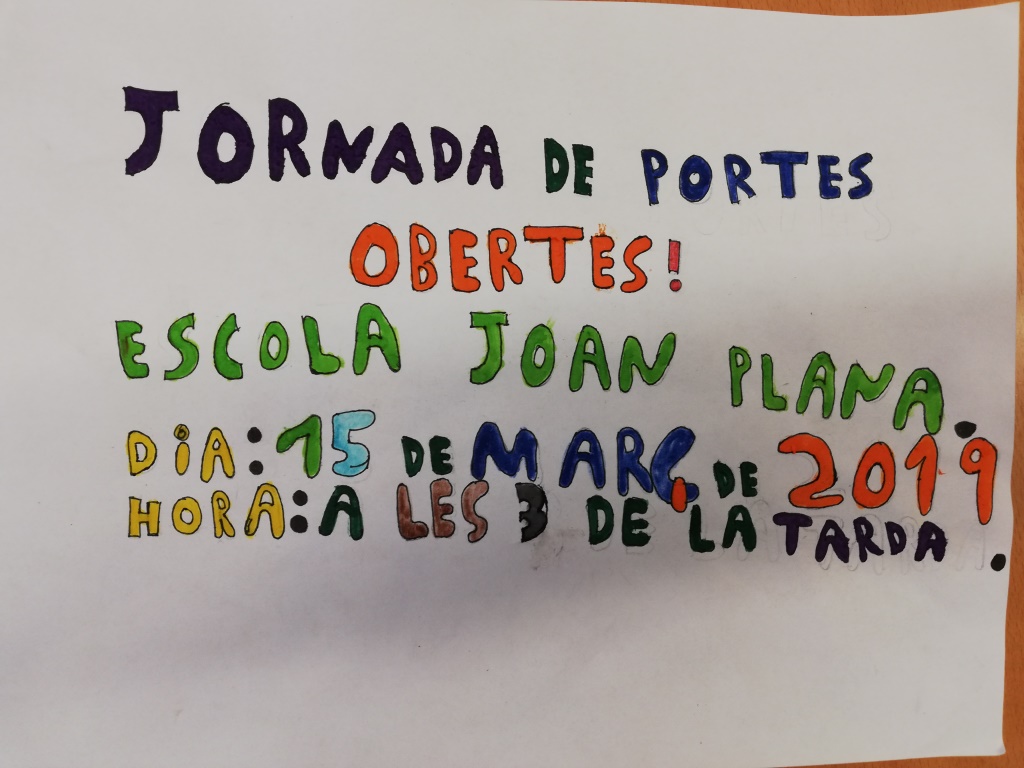 JORNADA DE PORTES
OBERTES!
ESCOLA JOAN PLANA.
DIA:15 DE MARÇ DE 2019
HORA:A LES 3 DE LA TARDA.